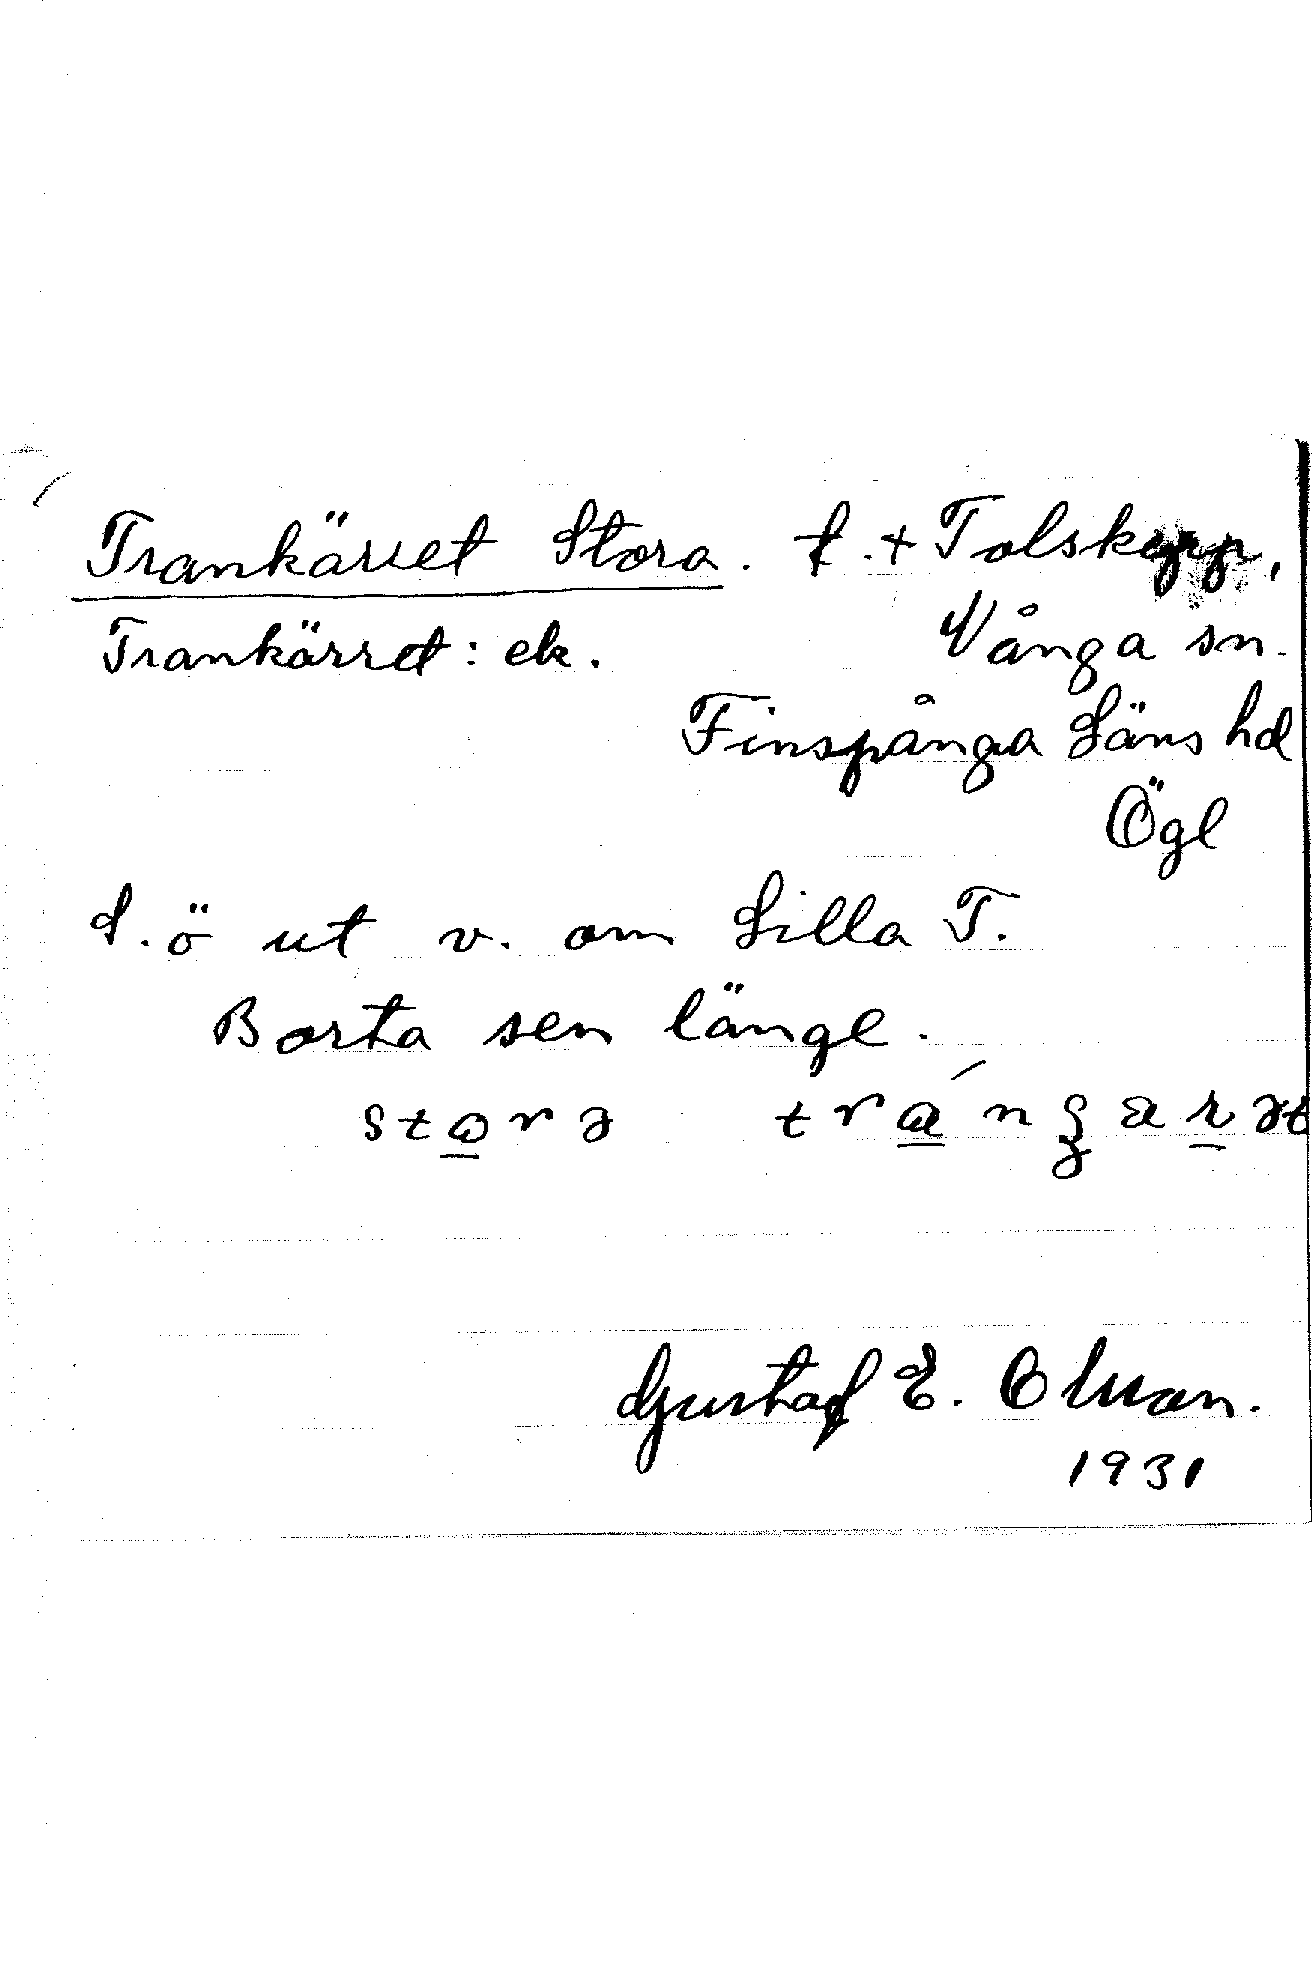 Trankärret Stora. t. + Tolskepp,
Trankärret: ek. Vånga sn.
Finspånga Läns hd
Ögl
S. ö ut v. om Lilla T.
Borta sen länge.
Gustaf E. Olman.
1931